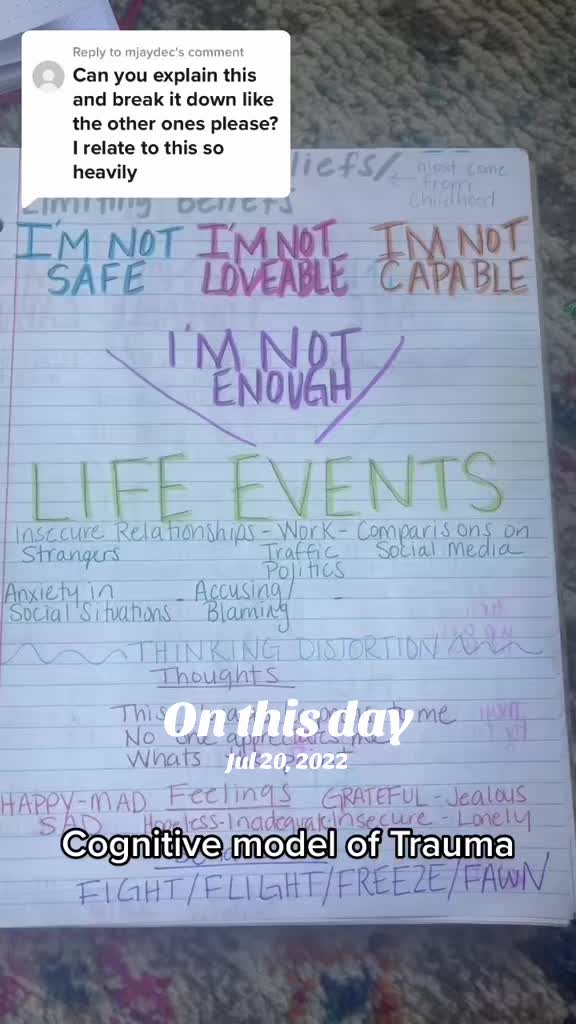 Reply to mjaydec's comment
Can you explain this
and break it down like
the other ones please?
I relate to this so
heavily
liefs/
most come
from
childhood
Limiting Beliefs
I'M NOT SAFE
I'M NOT LOVEABLE
I'M NOT CAPABLE
I'M NOT
ENOUGH
LIFE EVENTS
Insecure Relationships - Work - Comparisons on
Strangers Traffic Social media
Politics
Anxiety in - Accusing/ -
Social Situations Blaming
THINKING DISTORTION
Thoughts
This me
No one appreciates me
Whats
On this day
Jul 20, 2022
HAPPY-MAD Feelings GRATEFUL-Jealous
SAD Hopeless-Inadequate-Insecure-Lonely
Cognitive model of Trauma
FIGHT/FLIGHT/FREEZE/FAWN